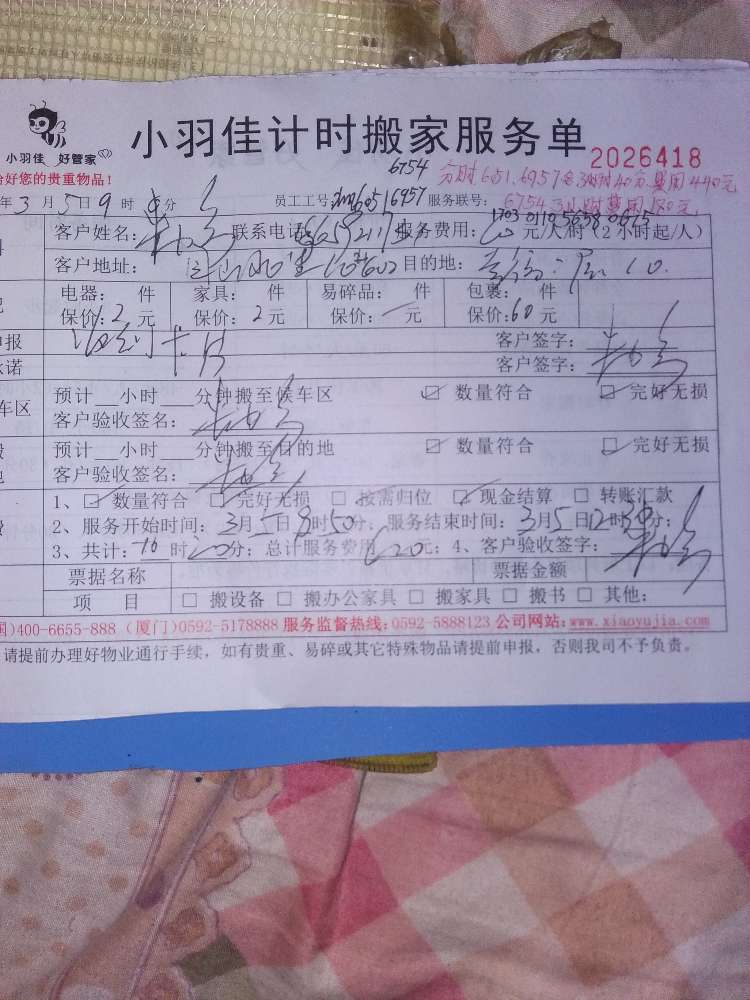 小羽佳 好管家
小羽佳计时搬家服务单
2026418
好您的贵重物品!
6754
分时6051.6957各3小时40分 费用440元
6754 3小时费用180元
年3月5日9时分 员工工号: 6051 6957 服务联号:
1703 0110 5658 0615
客户姓名: 联系电话: 服务费用: 60元/人/时(2小时起/人)
客户地址: 目的地:
电器: 件 家具: 件 易碎品: 件 包裹: 件
保价:2元 保价:2元 保价:一元 保价:60元
申报 客户签字:
承诺 客户签字:
车区 预计__小时___分钟搬至候车区 ☑ 数量符合 ☑ 完好无损
客户验收签名:
预计__小时___分钟搬至目的地 ☑ 数量符合 ☑ 完好无损
客户验收签名:
1、☑ 数量符合 ☑ 完好无损 □ 按需归位 ☑ 现金结算 □ 转账汇款
2、服务开始时间: 3月5日8时50分; 服务结束时间: 3月5日12时30分;
3、共计: 10时20分; 总计服务费用620元; 4、客户验收签字:
票据名称 票据金额
项 目 □ 搬设备 □ 搬办公家具 □ 搬家具 □ 搬书 □ 其他:
)400-6655-888 (厦门)0592-5178888 服务监督热线:0592-5888123 公司网站:www.xiaoyujia.com
请提前办理好物业通行手续,如有贵重、易碎或其它特殊物品请提前申报,否则我司不予负责。